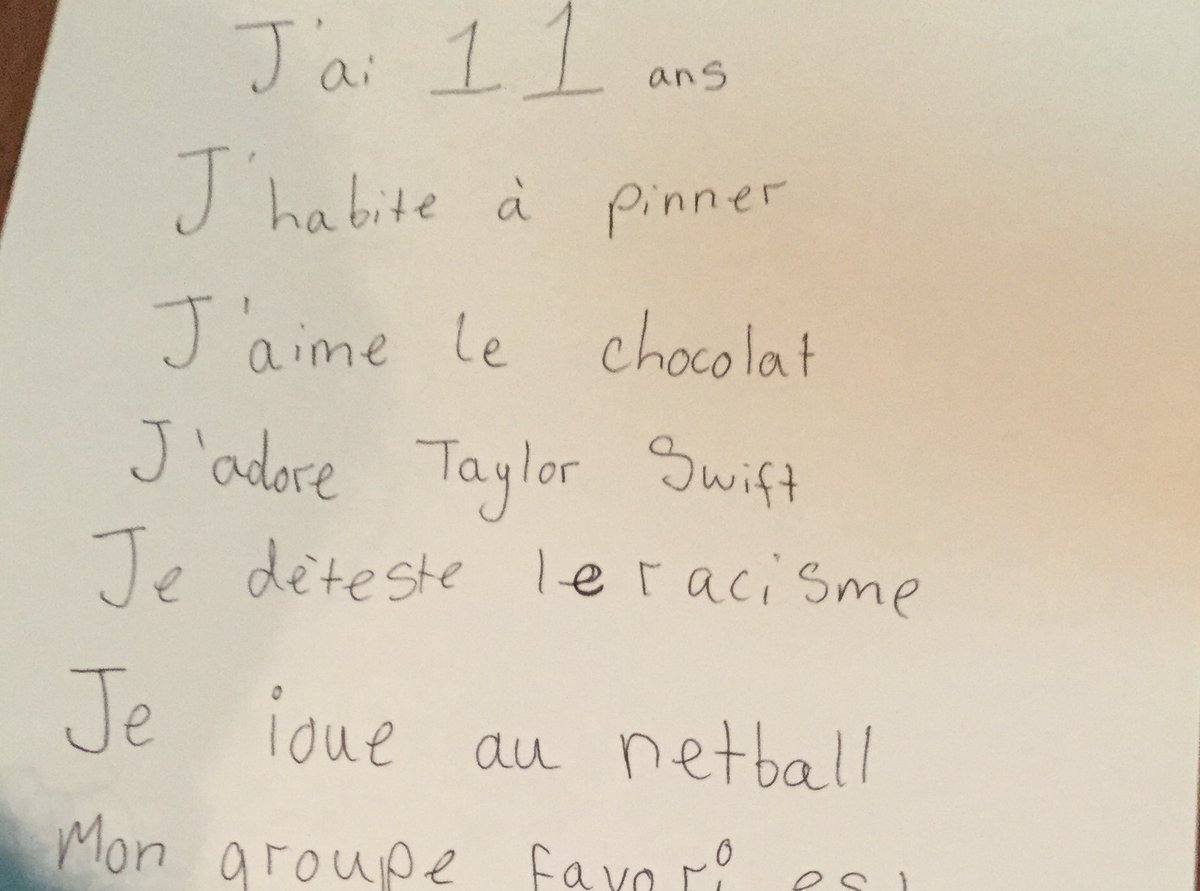 J'ai 11 ans
J'habite à pinner
J'aime le chocolat
J'adore Taylor Swift
Je dèteste le racisme
Je ioue au netball
Mon groupe favori est